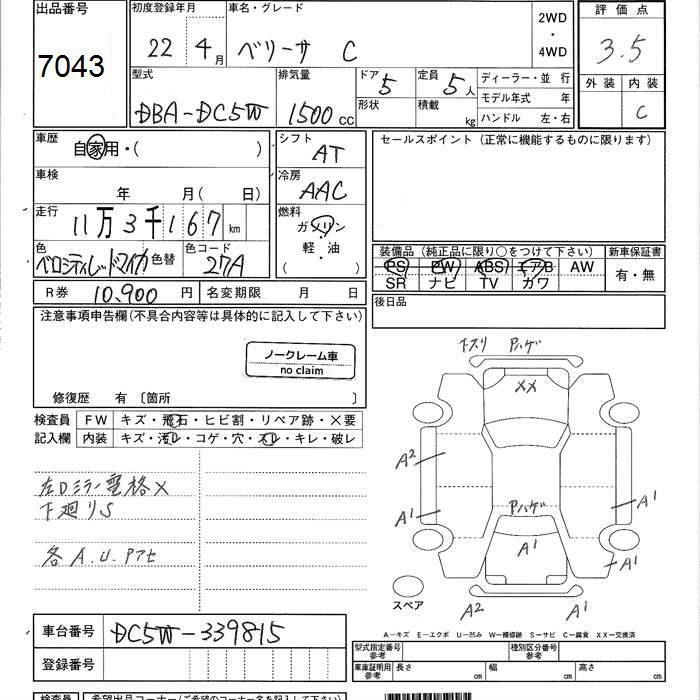 出品番号 初度登録年月 車名・グレード 2WD ・ 4WD 評価点
7043 22年 4月 ベリーサ C 3.5
型式 排気量 ドア 5 定員 5人 ディーラー・並 行 外装 内装
DBA-DC5W 1500cc 形状 積載 kg モデル年式 年 C
ハンドル 左・右
車歴 自家用・( ) シフト AT セールスポイント(正常に機能するものに限ります)
車検 年 月( 日) 冷房 AAC
走行 11万3千167km 燃料 ガソリン・軽・油 ( )
色 ベロシティレッドマイカ 色替 色コード 27A 装備品(純正品に限り○をつけて下さい) 新車保証書
PS PW ABS エアB AW 有・無
SR ナビ TV カワ
R券 10,900円 名変期限 月 日 後日品
注意事項申告欄(不具合内容等は具体的に記入して下さい)
ノークレーム車
no claim
修復歴 有 〔箇所 〕
検査員 FW キズ・飛石・ヒビ割・リペア跡・×要
記入欄 内装 キズ・汚レ・コゲ・穴・スレ・キレ・破レ
左Dミラー電格×
下廻りS
各A.U.Pアセ
下スリ Pハゲ
XX
A2
A1
Pハゲ
A1
A1
A1
スペア
A2 A1
A-キズ E-エクボ U-凹み W-補修跡 S-サビ C-腐食 XX-交換済
車台番号 DC5W-339815
登録番号
型式指定番号 参考 種別区分番号 参考
車庫証明用 参考 長さ cm 幅 cm 高さ cm
検査員 希望出品コーナー(ご希望のコーナー名を記入